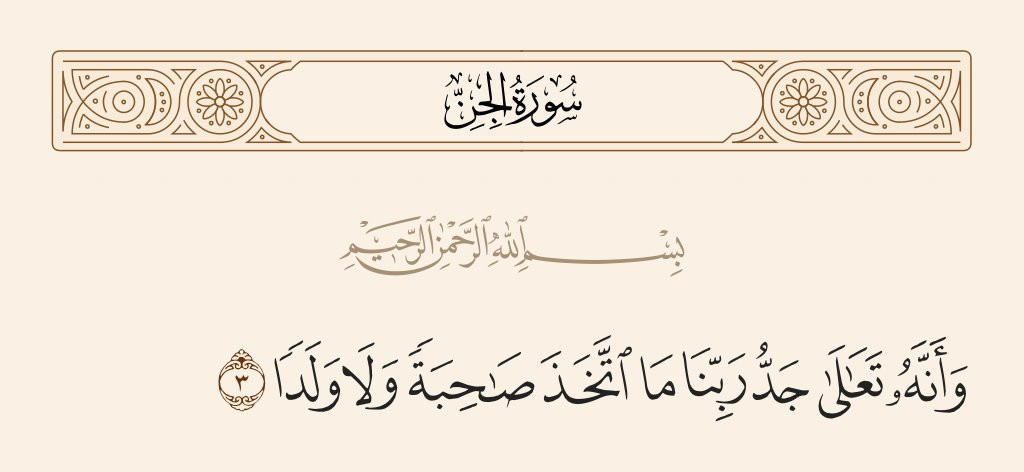 سُورَةُ الجِنِّ
بِسْمِ ٱللَّهِ ٱلرَّحْمَٰنِ ٱلرَّحِيمِ
وَأَنَّهُۥ تَعَٰلَىٰ جَدُّ رَبِّنَا مَا ٱتَّخَذَ صَٰحِبَةً وَلَا وَلَدًا ٣